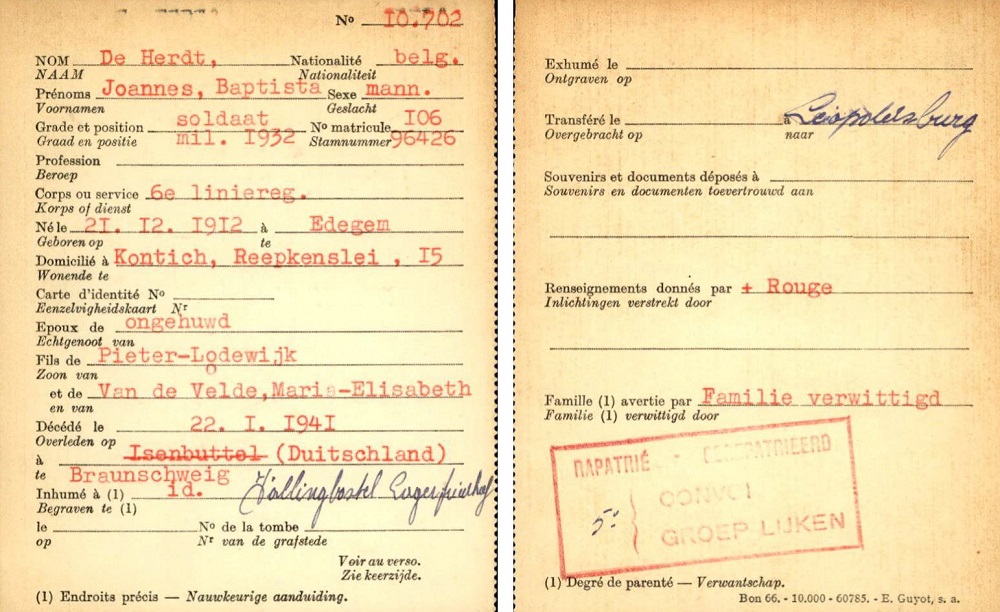 Nº 10.702
NOM De Herdt, Nationalité belg.
NAAM Nationaliteit
Prénoms Joannes, Baptista Sexe mann.
Voornamen Geslacht
Grade et position soldaat Nº matricule 106
Graad en positie mil. 1932 Stamnummer 96426
Profession
Beroep
Corps ou service 6e liniereg.
Korps of dienst
Né le 21. 12. 1912 à Edegem
Geboren op te
Domicilié à Kontich, Reepkenslei , 15
Wonende te
Carte d'identité Nº
Eenzelvigheidskaart Nr
Epoux de ongehuwd
Echtgenoot van
Fils de Pieter-Lodewijk
Zoon van
et de Van de Velde, Maria-Elisabeth
en van
Décédé le 22. I. 1941
Overleden op
à Isenbuttel (Duitschland)
te Braunschweig
Inhumé à (1) id. Fallingbostel Lagerfriedhof
Begraven te (1)
le Nº de la tombe
op Nr van de grafstede
Voir au verso.
Zie keerzijde.
(1) Endroits précis — Nauwkeurige aanduiding.
Exhumé le
Ontgraven op
Transféré le à Leopoldsburg
Overgebracht op naar
Souvenirs et documents déposés à
Souvenirs en documenten toevertrouwd aan
Renseignements donnés par + Rouge
Inlichtingen verstrekt door
Famille (1) avertie par Familie verwittigd
Familie (1) verwittigd door
RAPATRIÉ - GEREPATRIEERD
5e CONVOI
GROEP LIJKEN
(1) Degré de parenté — Verwantschap.
Bon 66. - 10.000 - 60785. - E. Guyot, s. a.